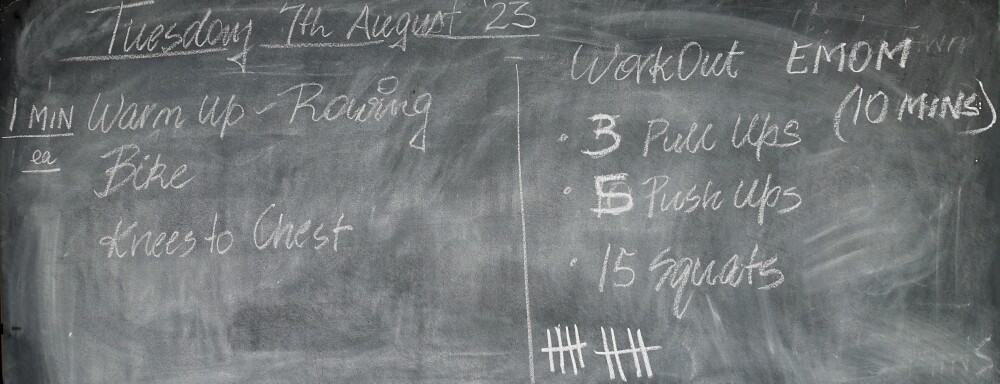 Tuesday 7th August '23
1 MIN ea
Warm Up - Rowing
Bike
Knees to Chest
WorkOut EMOM
(10 MINS)
• 3 Pull Ups
• 5 Push Ups
• 15 Squats